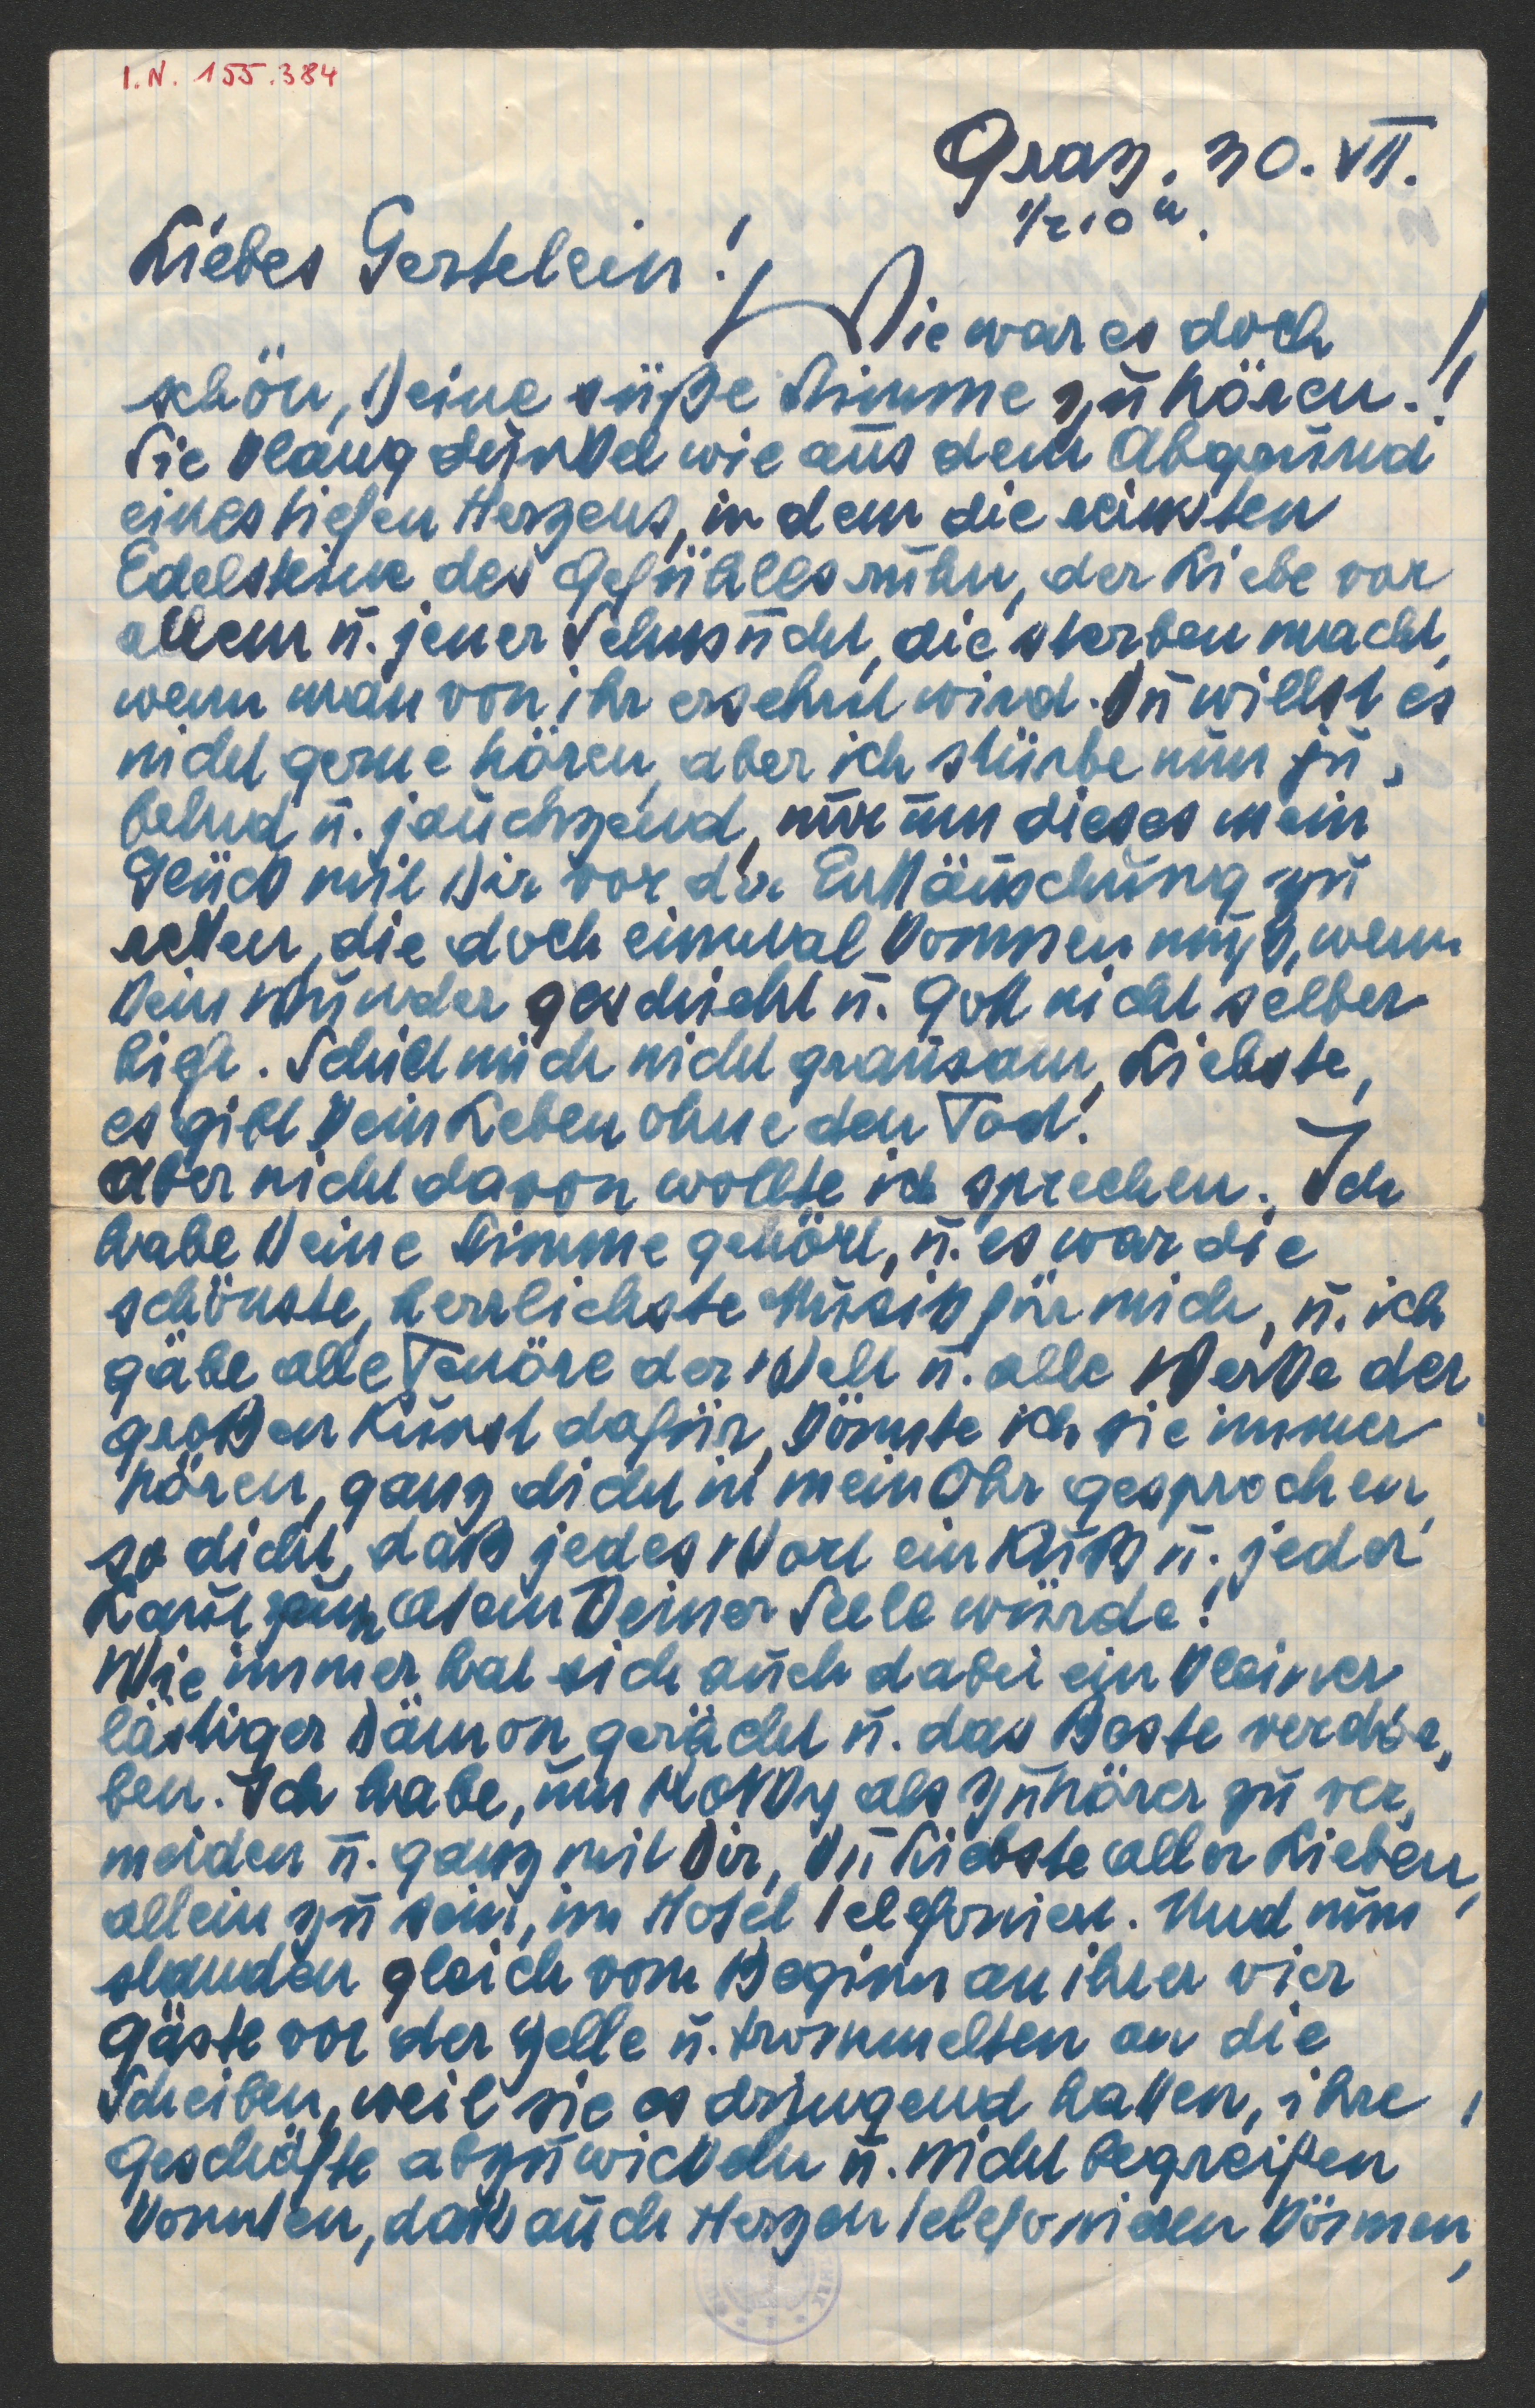 I.N. 155.384
Graz, 30. VII.
1/2 10 u.
Liebes Gertelein!
Wie war es doch
schön, Deine süße Stimme zu hören!!
Sie klang dunkel wie aus dem Abgrund
eines tiefen Herzens, in dem die reinsten
Edelsteine des Gefühlls ruhn, der Liebe vor
allem u. jener Sehnsucht, die sterben macht,
wenn man von ihr ersehnt wird. Du willst es
nicht gerne hören, aber ich stürbe nun ju,
belnd u. jauchzend, nur um dieses mein
Glück mit Dir vor der Enttäuschung zu
retten, die doch einmal kommen muß, wenn
kein Wunder geschieht u. Gott nicht selber
hilft. Schilt mich nicht grausam, Liebste,
es gibt kein Leben ohne den Tod!
Aber nicht davon wollte ich sprechen. Ich
habe Deine Stimme gehört, u. es war die
schönste, herrlichste Musik für mich, u. ich
gäbe alle Tenöre der Welt u. alle Werke der
großen Kunst dafür, könnte ich sie immer
hören, ganz dicht in mein Ohr gesprochen,
so dicht, daß jedes Wort ein Kuß u. jeder
Laut zum Atem Deiner Seele würde!
Wie immer hat sich auch dabei ein kleiner
lästiger Dämon gerächt u. das Beste verdor,
ben. Ich habe, um als Zuhörer zu ver,
meiden u. ganz mit Dir, Du Liebste aller Lieben,
allein zu sein, im Hotel telefoniert. Und nun
standen gleich vom Beginn an ihrer vier
Gäste vor der Zelle u. trommelten an die
Scheiben, weil sie es dringend hatten, ihre
Geschäfte abzuwickeln u. nicht begreifen
konnten, daß auch Herzen telefonieren können,